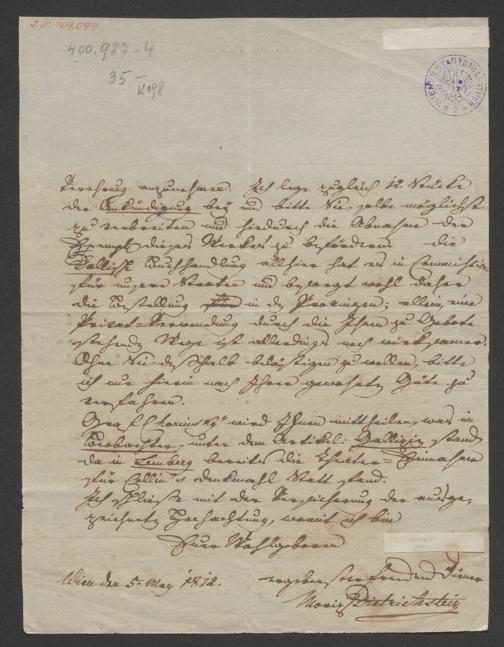 J.N. 109.099
400.987-4
35 —
K198
WIENER STADTBIBLIOTHEK
Verehrung anzunehmen. Ich lege zugleich 12. Stücke
der Ankündigung bey und bitte Sie, selbe möglichst
zu verbreiten und hiedurch die Abnahme der
Exempl. dieses Werkes zu befördern. die
Buchhandlung allhier hat es in Commission
für unsere Staaten und besorgt wohl daher
die Bestellung in den Provinzen; allein, eine
Privat-Verwendung durch die Ihnen zu Gebote
stehenden Wege ist allerdings noch wirksamer.
Ohne Sie deshalb belästigen zu wollen, bitte
ich nur hierin nach Ihrer gewohnten Güte zu
verfahren.
Graf Chorinsky wird Ihnen mittheilen, was im
Beobachter, unter dem Artikel: Gallizien stand,
da in Lemberg bereits die Theater-Einnahme
für Collin's Denkmahl Statt fand.
Ich schließe mit der Versicherung der ausge-
zeichneten Hochachtung, womit ich bin
Euer Wohlgeboren
Wien den 5. May 1812.
ergebenster Diener
Moriz Dietrichstein